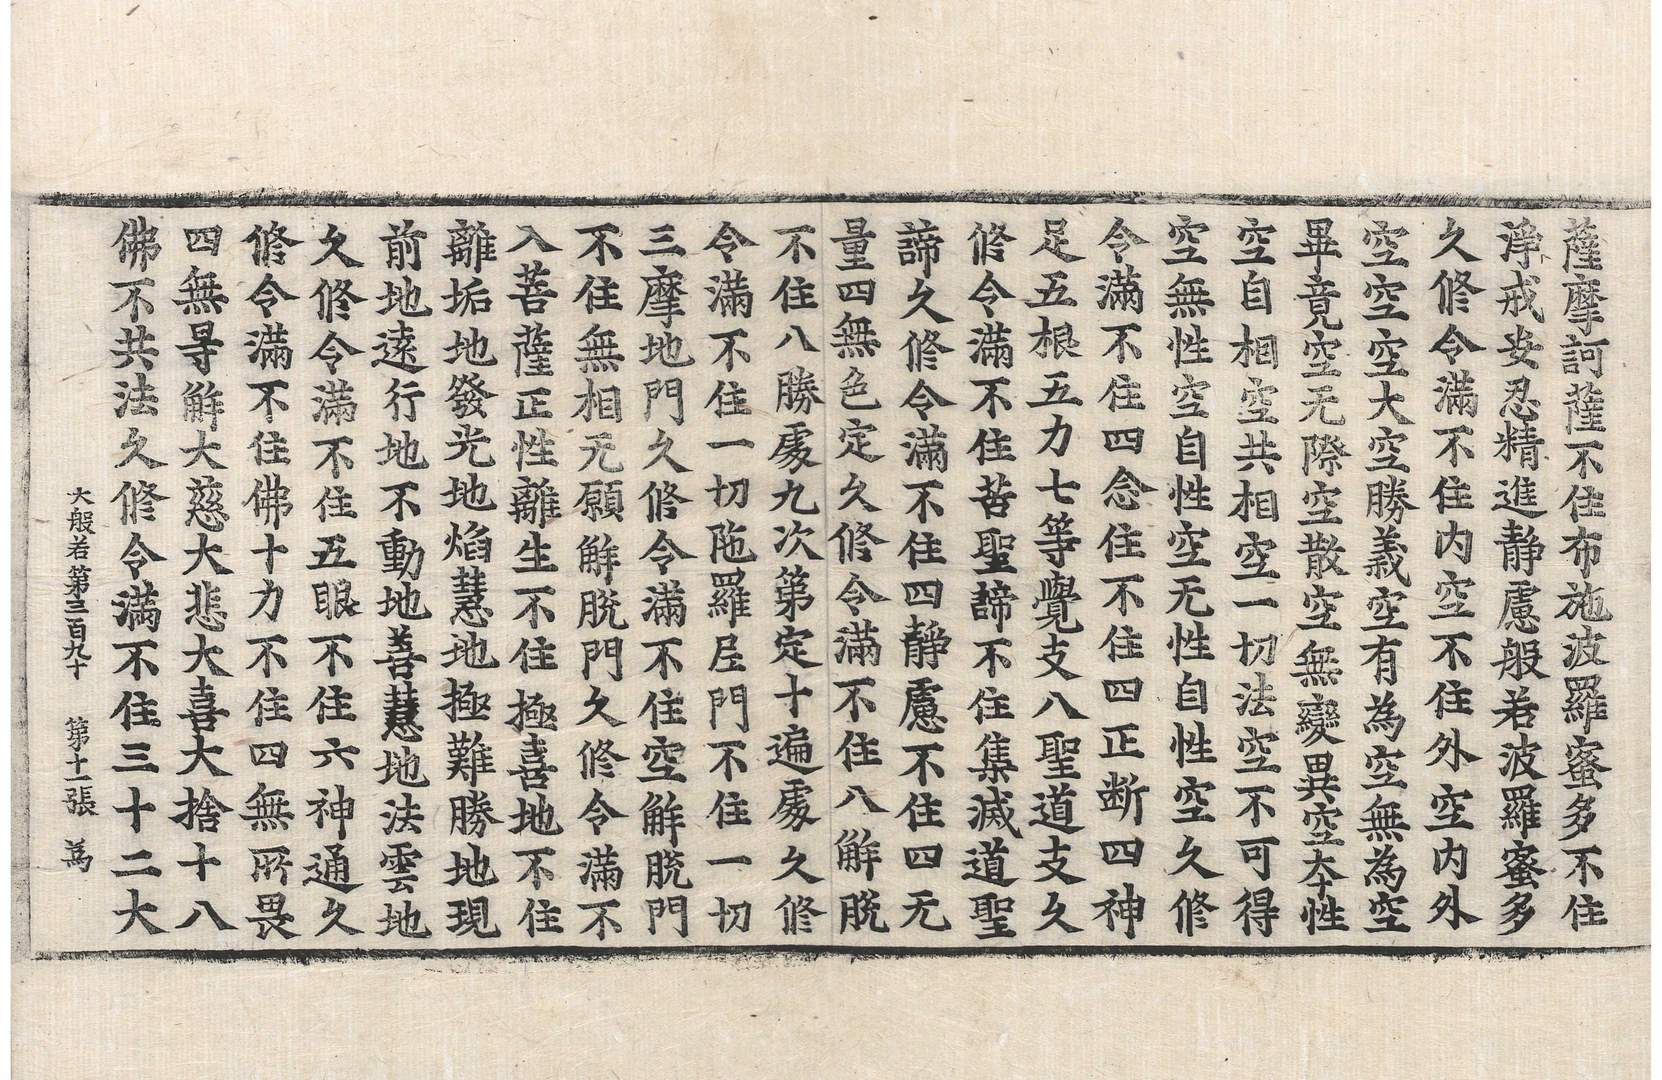 薩摩訶薩不住布施波羅蜜多不住
淨戒安忍精進靜慮般若波羅蜜多
久修令滿不住內空不住外空內外
空空空大空勝義空有為空無為空
畢竟空无際空散空無變異空本性
空自相空共相空一切法空不可得
空無性空自性空无性自性空久修
令滿不住四念住不住四正斷四神
足五根五力七等覺支八聖道支久
修令滿不住苦聖諦不住集滅道聖
諦久修令滿不住四靜慮不住四无
量四無色定久修令滿不住八解脫
不住八勝處九次第定十遍處久修
令滿不住一切陁羅尼門不住一切
三摩地門久修令滿不住空解脫門
不住無相无願解脫門久修令滿不
入菩薩正性離生不住極喜地不住
離垢地發光地焰慧地極難勝地現
前地遠行地不動地善慧地法雲地
久修令滿不住五眼不住六神通久
修令滿不住佛十力不住四無所畏
四無㝵解大慈大悲大喜大捨十八
佛不共法久修令滿不住三十二大
大般若第三百九十 第十一張 為